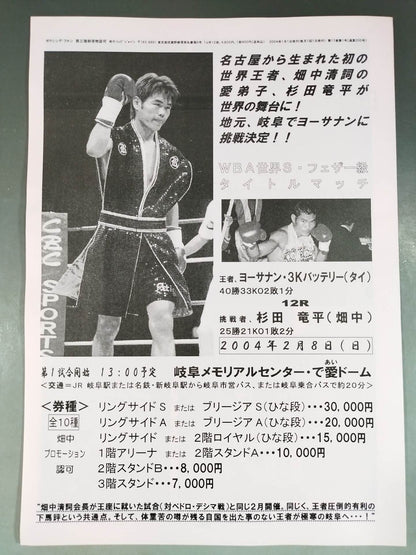 名古屋から生まれた初の
世界王者、畑中清詞の
愛弟子、杉田竜平が
世界の舞台に！
地元、岐阜でヨーサナンに
挑戦決定！！
WBA世界S・フェザー級
タイトルマッチ
CBC SPORTS
王者、ヨーサナン・3Kバッテリー(タイ)
40勝33KO2敗1分
12R
挑戦者、杉田 竜平(畑中)
25勝21KO1敗2分
2004年2月8日(日)
第1試合開始 13:00予定 岐阜メモリアルセンター・で愛ドーム
あい
<交通=JR 岐阜駅または名鉄・新岐阜駅から岐阜市営バス、または岐阜乗合バスで約20分>
<券種> リングサイドS または ブリージアS(ひな段)・・・30,000円
全10種 リングサイドA または ブリージアA(ひな段)・・・20,000円
畑中 リングサイド または 2階ロイヤル(ひな段)・・・15,000円
プロモーション 1階アリーナ または 2階スタンドA・・・10,000円
認可 2階スタンドB・・・8,000円
3階スタンド・・・7,000円
"畑中清詞会長が王座に就いた試合(対ペドロ・デシマ戦)と同じ2月開催。同じく、王者圧倒的有利の
下馬評という共通点。そして、体重苦の噂が残る自国を出た事のない王者が極寒の岐阜へ・・・！"